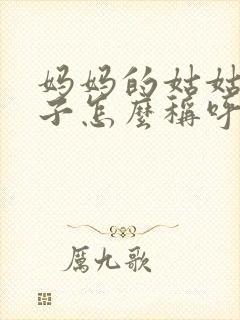 妈妈的姑姑
子怎麼稱呼
厲九歌